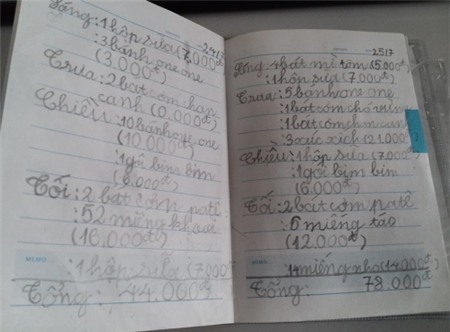 24/7
Sáng: 1 hộp sữa (7.000đ)
: 3 bánh one one
(3.000đ)
Trưa: 2 bát cơm chan
canh (0.000đ)
Chiều: 10 bánh one one
(10.000đ)
: 1 gói bim bim
(8.000đ)
Tối: 2 bát cơm patê
: 52 miếng khoai
(16.000đ)
MEMO
: 1 hộp sữa (7.000đ
Tổng: 44.000đ
25/7
Sáng: 1 bát mì tôm (5.000đ)
: 1 hộp sữa (7.000đ)
Trưa: 5 bánh one one
: 1 bát cơm chó vừng
: 1 bát cơm chan canh
: 3 xúc xích (21.000đ)
Chiều: 1 hộp sữa (7.000đ
: 1 gói bim bim
(6.000đ)
Tối: 2 bát cơm patê
: 5 miếng táo
(12.000đ)
MEMO
: 14 miếng nho (14.000đ)
Tổng: 78.000đ